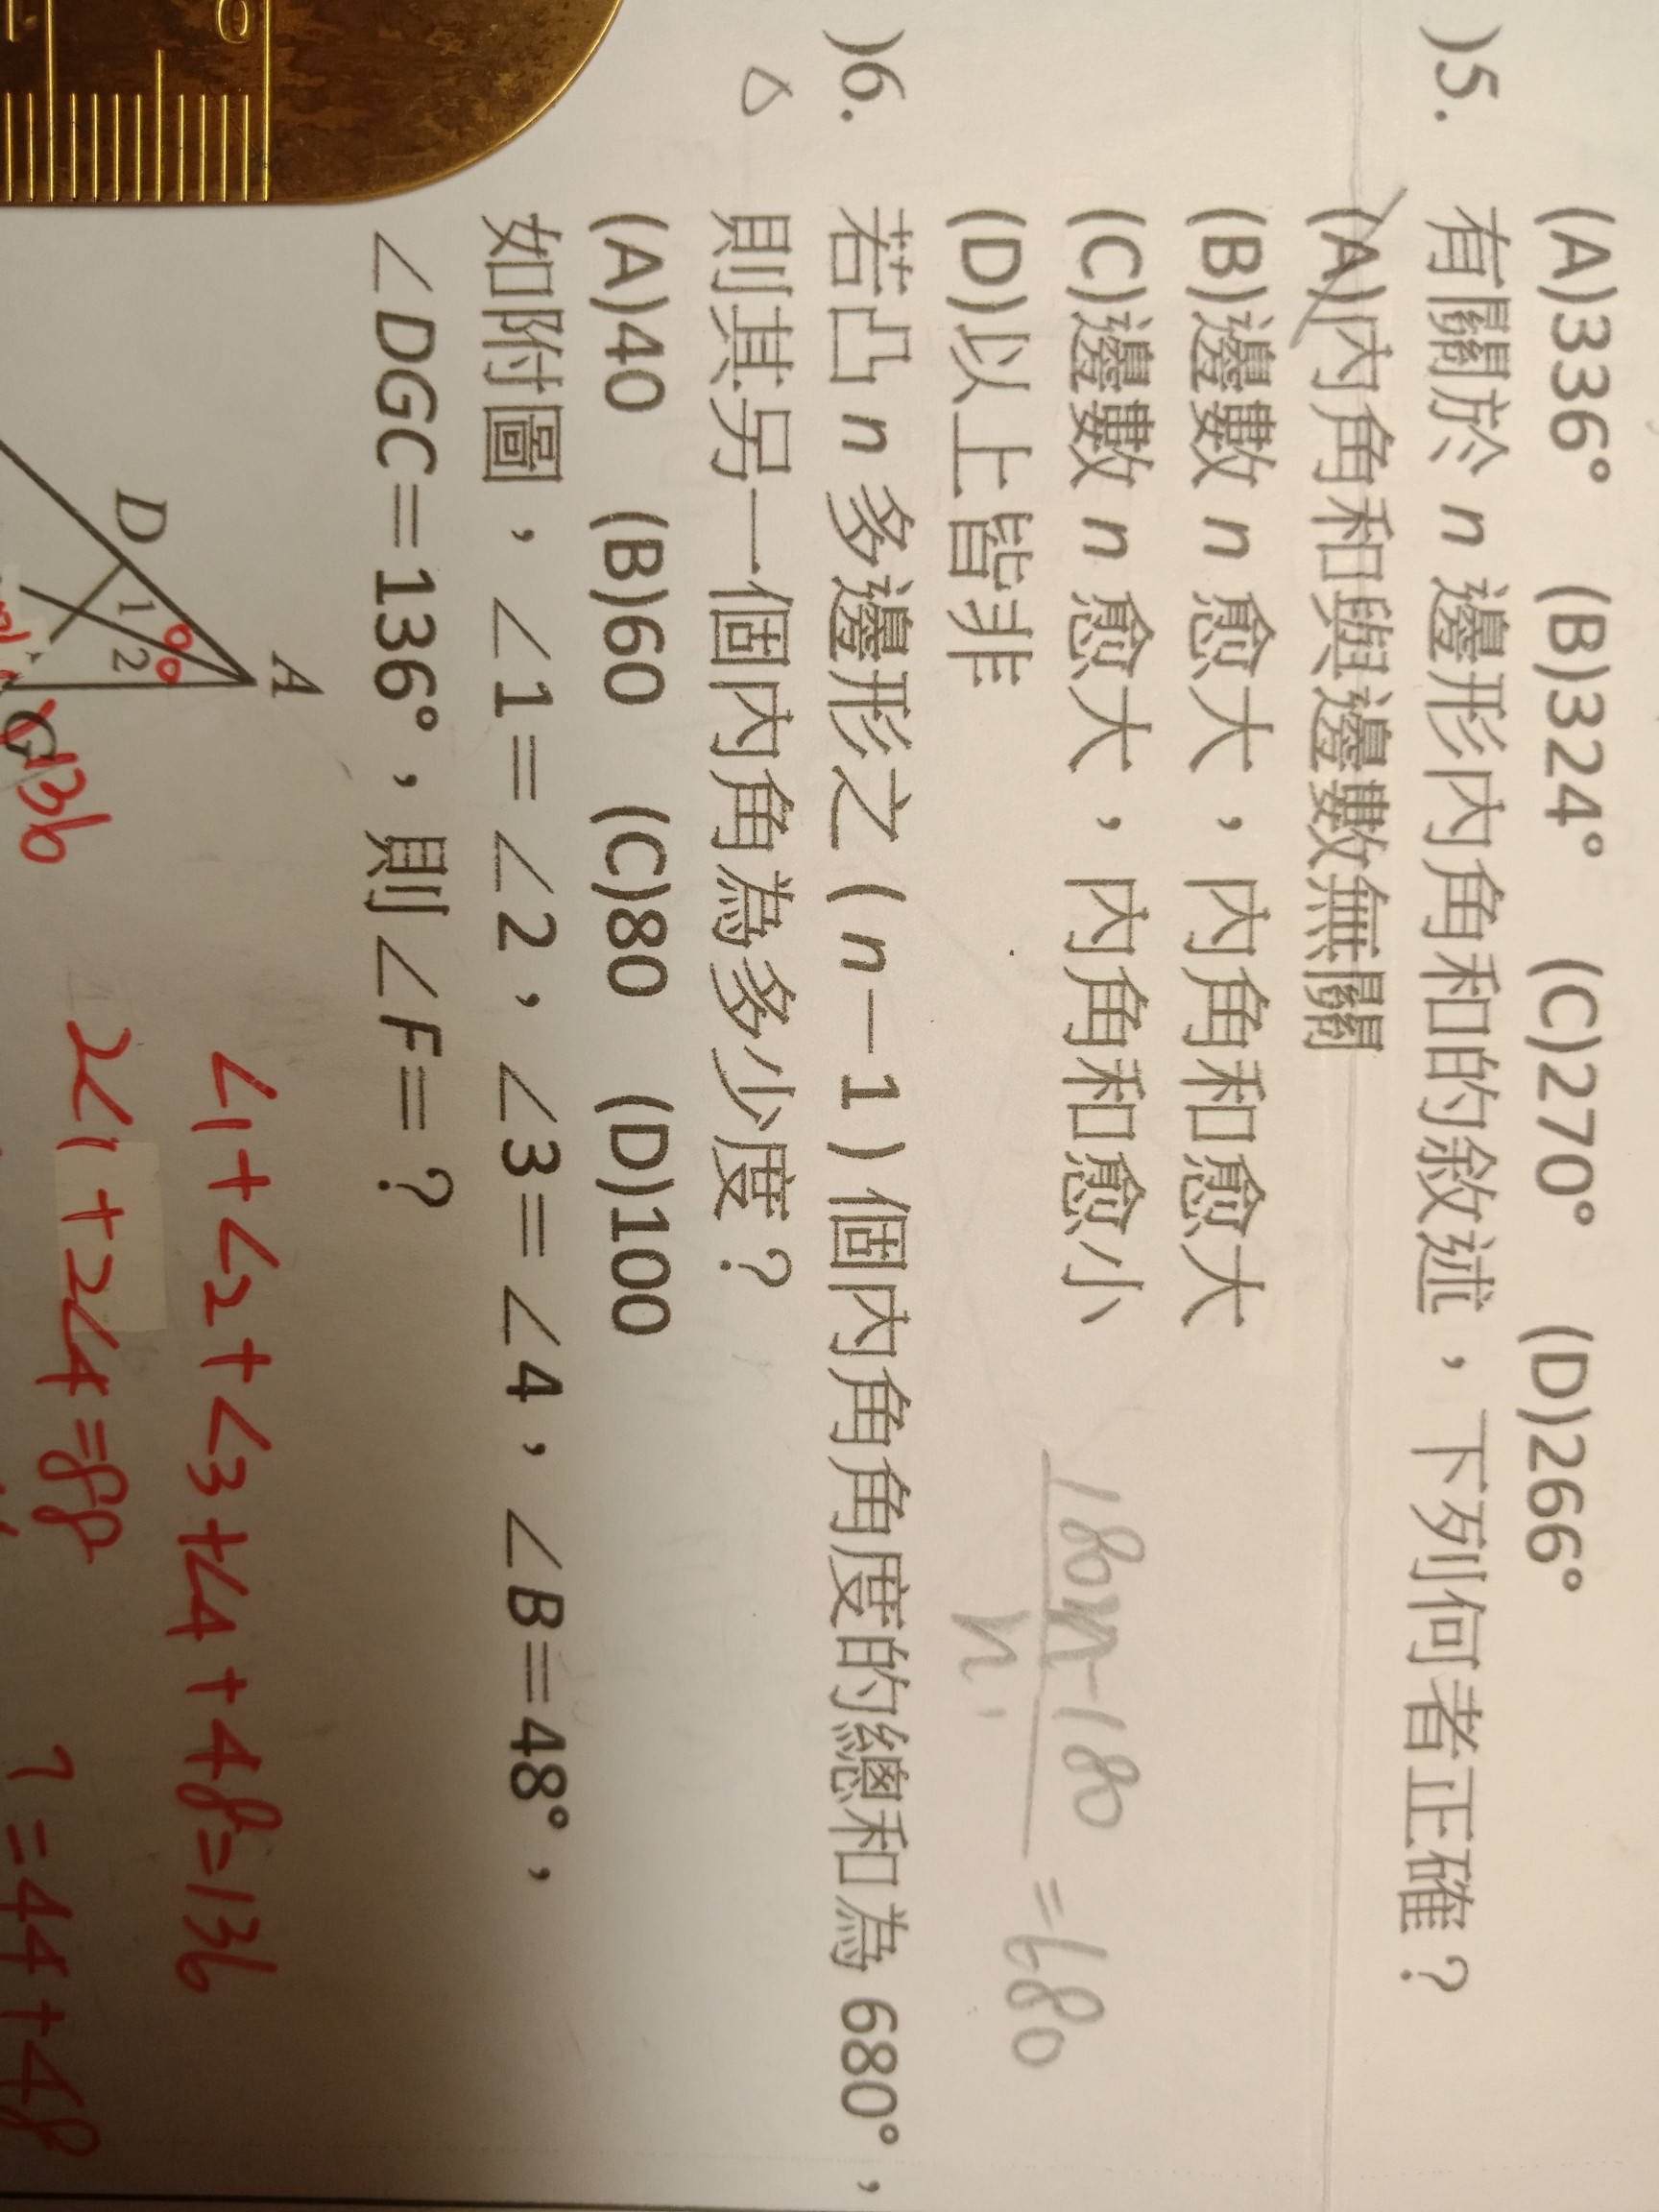 (A)336° (B)324° (C)270° (D)266°
)5. 有關於 n 邊形內角和的敘述，下列何者正確？
(A)內角和與邊數無關
(B)邊數 n 愈大，內角和愈大
(C)邊數 n 愈大，內角和愈小
(D)以上皆非
180n-180
n
=680
)6. 若凸 n 多邊形之 ( n－1 ) 個內角角度的總和為 680°，
則其另一個內角為多少度？
(A)40 (B)60 (C)80 (D)100
如附圖，∠1＝∠2，∠3＝∠4，∠B＝48°，
∠DGC＝136°，則∠F＝？
A
D
1
2
G
136
∠1+∠2+∠3+∠4+48=136
2∠1+2∠4=88
?=44+48
0
1